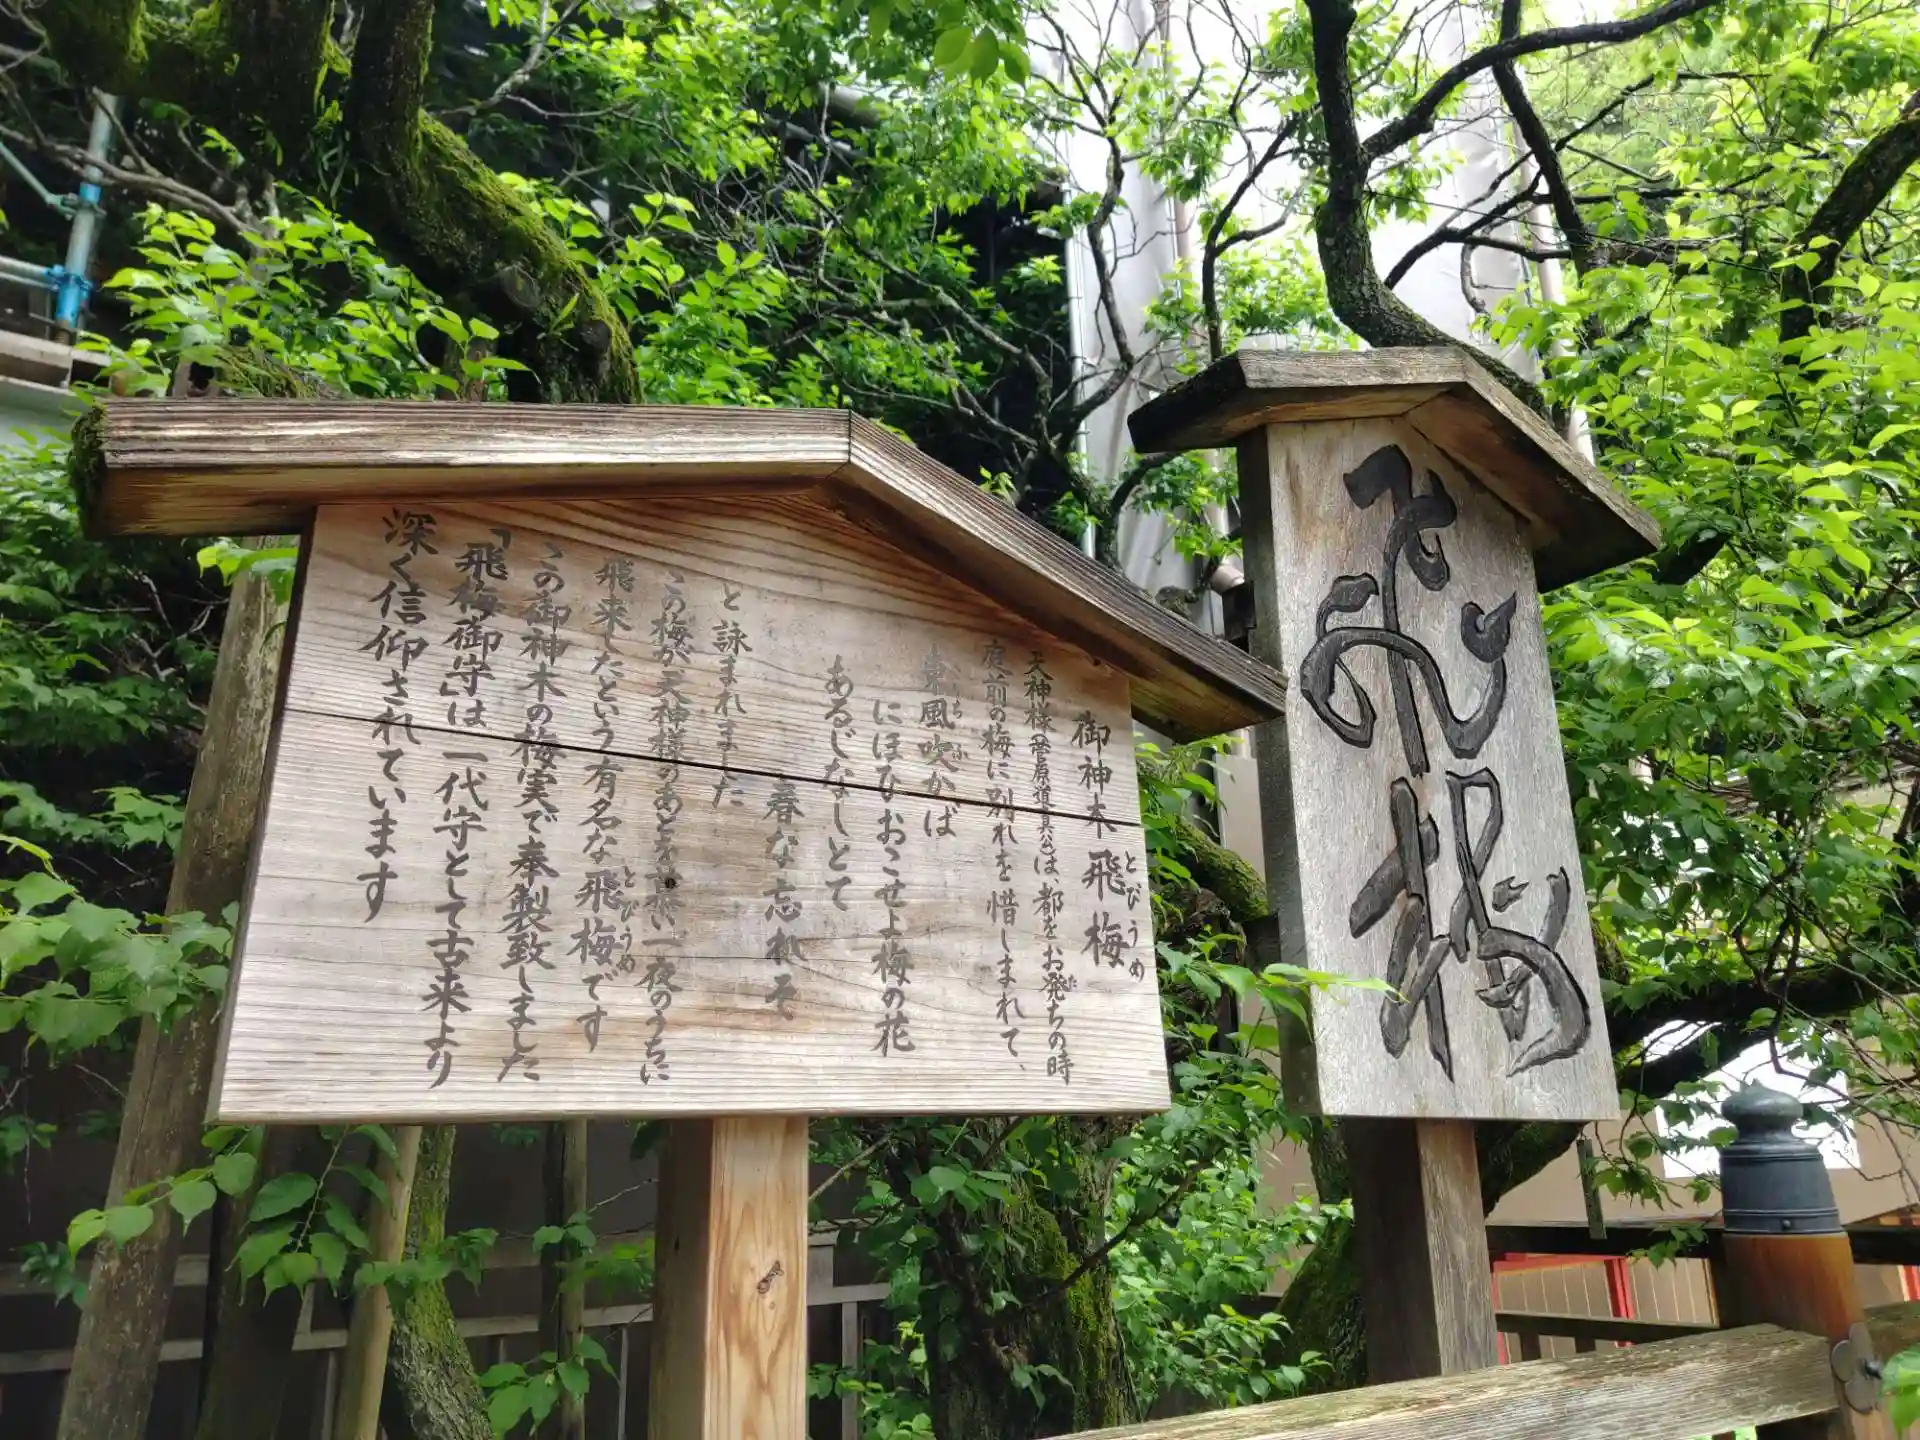 御神木 飛梅
とびうめ
天神様(菅原道真公)は、都をお発ちの時
た
庭前の梅に別れを惜しまれて、
東風吹かば
こち ふ
にほひおこせよ梅の花
あるじなしとて
春な忘れそ
と詠まれました
この梅が天神様のあとを慕い一夜のうちに
飛来したという有名な飛梅です
とびうめ
この御神木の梅実で奉製致しました
「飛梅御守」は一代守として古来より
深く信仰されています
飛梅